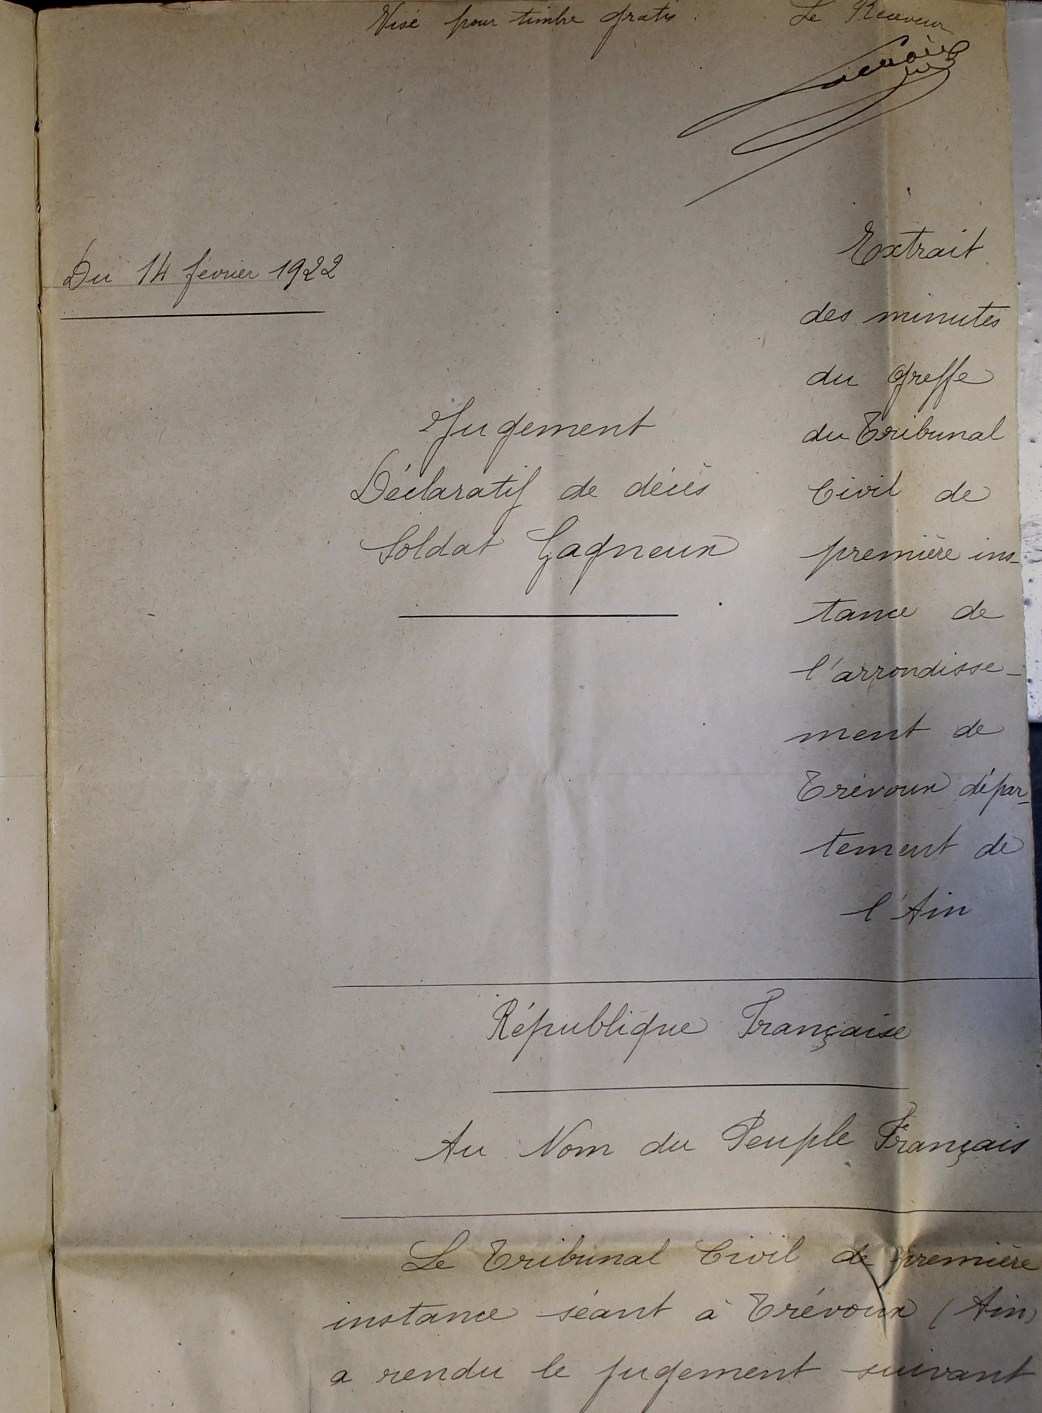 Visé pour timbre gratis. Le Receveur
Du 14 février 1922
Jugement
Déclaratif de décès
Soldat Gagneux
Extrait
des minutes
du Greffe
du Tribunal
Civil de
première ins-
tance de
l'arrondisse-
ment de
Trévoux dépar-
tement de
l'Ain
République Française
Au Nom du Peuple Français
Le Tribunal Civil de première
instance séant à Trévoux (Ain)
a rendu le jugement suivant